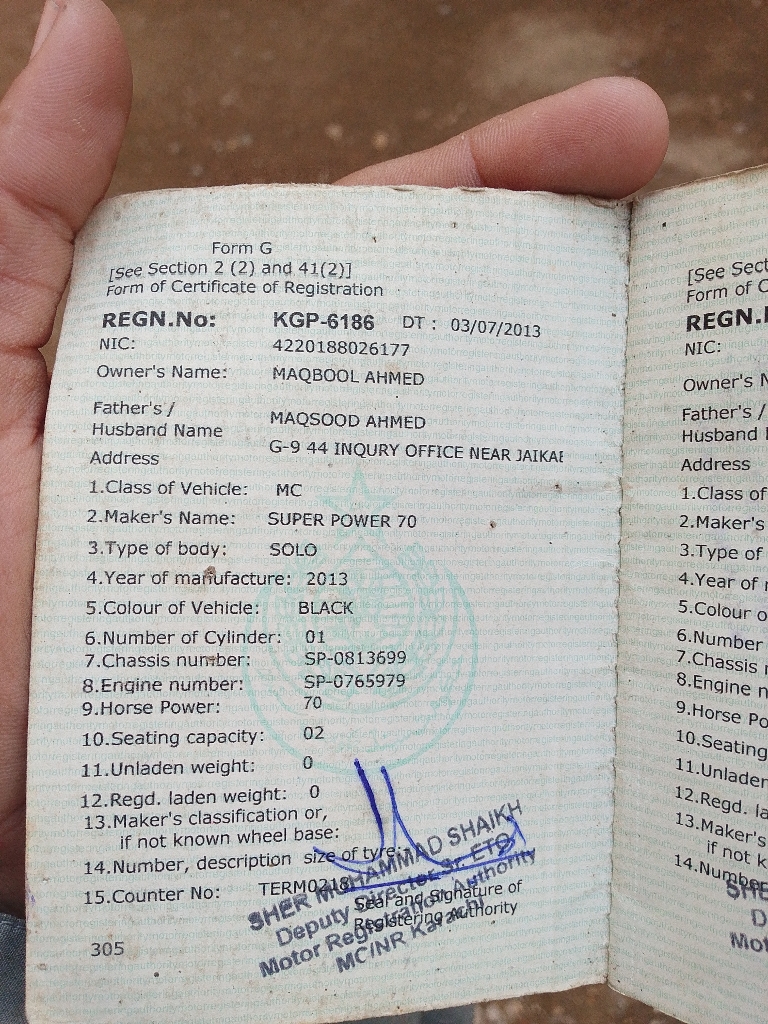 Form G
[See Section 2 (2) and 41(2)]
Form of Certificate of Registration
REGN.No: KGP-6186 DT : 03/07/2013
NIC: 4220188026177
Owner's Name: MAQBOOL AHMED
Father's /
Husband Name MAQSOOD AHMED
Address G-9 44 INQURY OFFICE NEAR JAIKAE
1.Class of Vehicle: MC
2.Maker's Name: SUPER POWER 70
3.Type of body: SOLO
4.Year of manufacture: 2013
5.Colour of Vehicle: BLACK
6.Number of Cylinder: 01
7.Chassis number: SP-0813699
8.Engine number: SP-0765979
9.Horse Power: 70
10.Seating capacity: 02
11.Unladen weight: 0
12.Regd. laden weight: 0
13.Maker's classification or,
if not known wheel base:
14.Number, description size of tyre:
15.Counter No: TERM0218
Seal and Signature of
Registering Authority
SHER MUHAMMAD SHAIKH
Deputy Director Sr. ETO
Motor Registration Authority
MC/NR Karachi
305
[See Sect
Form of C
REGN.
NIC:
Owner's N
Father's /
Husband
Address
1.Class of
2.Maker's
3.Type of
4.Year of
5.Colour o
6.Number
7.Chassis
8.Engine n
9.Horse Po
10.Seating
11.Unladen
12.Regd. la
13.Maker's
if not k
14.Number
SHE
D
Mot